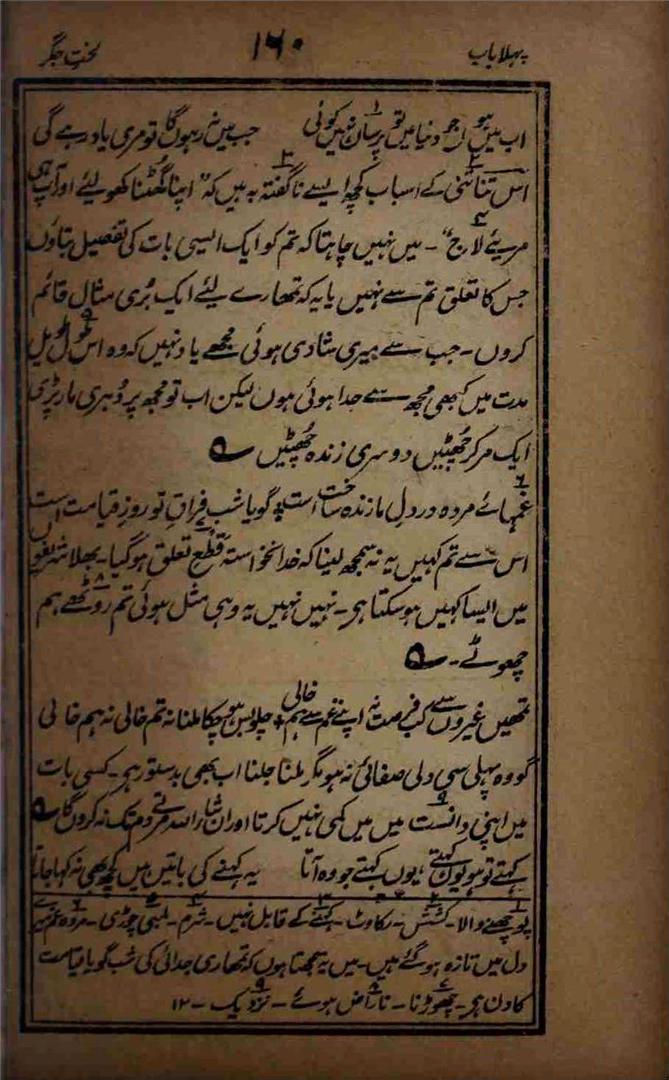 پہلا باب ۱۶۰ لخت جگر
اب میں ہوں جو دنیا میں تو پرساں نہیں کوئی جب میں نہ رہوں گا تو مری یاد رہے گی
اس تنا تنی کے اسباب کچھ ایسے ناگفتہ بہ ہیں کہ "اپنا گھٹنا کھولیئے اور آپ ہی
مریئے لاج"۔ میں نہیں چاہتا کہ تم کو ایک ایسی بات کی تفصیل بتاؤں
جس کا تعلق تم سے نہیں یا یہ کہ تمھارے لیئے ایک بُری مثال قائم
کروں۔ جب سے میری شادی ہوئی مجھے یاد نہیں کہ وہ اس طول طویل
مدت میں کبھی مجھ سے جدا ہوئی ہوں لیکن اب تو مجھ پر دُہری مار پڑی
ایک مرکر چھٹیں دوسری زندہ چھٹیں ؎
غمہائے مردہ در دل ما زندہ ساخت است گویا شب فراق تو روز قیامت است
اس سے تم کہیں یہ نہ سمجھ لینا کہ خدانخواستہ قطع تعلق ہوگیا۔ بھلا شریفوں
میں ایسا کہیں ہوسکتا ہی۔ نہیں نہیں یہ وہی مثل ہوئی تم روٹھے ہم
چھوٹے۔ ؎
تمھیں غیروں سے کب فرصت نہ اپنے غم سے ہم خالی چلو بس ہو چکا ملنا نہ تم خالی نہ ہم خالی
گو وہ پہلی سی دلی صفائی نہ ہو مگر ملنا جلنا اب بھی بدستور ہی۔ کسی بات
میں اپنی دانست میں میں کمی نہیں کرتا اور ان شاء اللہ مرتے دم تک نہ کروں گا ؎
کہتے تو ہو یوں کہتے، یوں کہتے جو وہ آتا یہ کہنے کی باتیں ہیں کچھ بھی نہ کہا جاتا
۱ پوچھنے والا۔ ۲ کشش۔ رکاوٹ۔ ۳ کہنے کے قابل نہیں۔ ۴ شرم۔ ۵ لمبی چوڑی۔ ۶ مردہ غم میرے
دل میں تازہ ہوگئے ہیں۔ میں یہ سمجھتا ہوں کہ تمھاری جدائی کی شب گویا قیامت
کا دن ہی۔ ۷ چھوڑنا۔ ۸ ناراض ہوئے۔ ۹ نزدیک۔ ۱۲